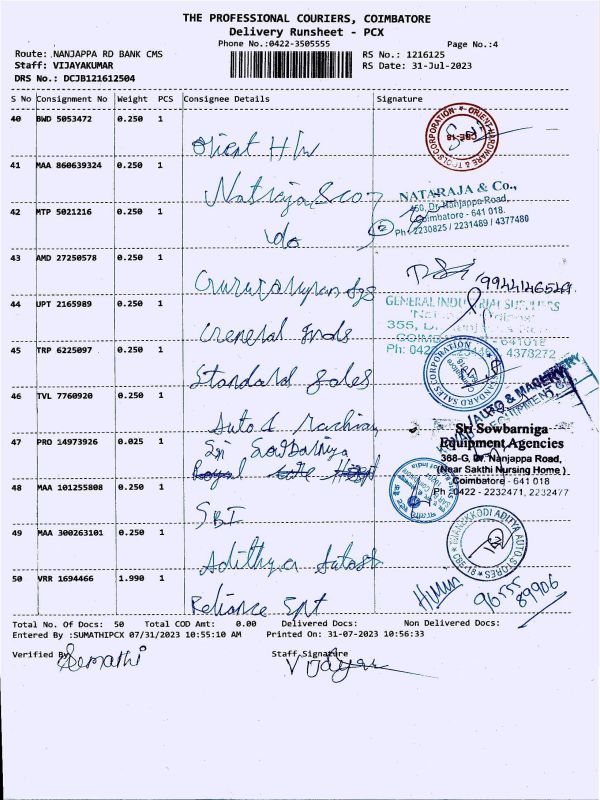 THE PROFESSIONAL COURIERS, COIMBATORE
Delivery Runsheet - PCX
Phone No.:0422-3505555 Page No.:4
Route: NANJAPPA RD BANK CMS RS No.: 1216125
Staff: VIJAYAKUMAR RS Date: 31-Jul-2023
DRS No.: DCJB121612504
S No Consignment No Weight PCS Consignee Details Signature
40 BWD 5053472 0.250 1
Orient H/w
ORIENT HARDWARE & TOOLS CORPORATION CBE-18
41 MAA 860639324 0.250 1
Nataraja & co
NATARAJA & Co.,
450, Dr. Nanjappa Road,
Coimbatore - 641 018.
Ph : 2230825 / 2231489 / 4377480
42 MTP 5021216 0.250 1
do
43 AMD 27250578 0.250 1
9944146549
44 UPT 2165989 0.250 1
General Inds
GENERAL INDUSTRIAL SUPPLIERS
355,
Ph: 0422 4378272
45 TRP 6225097 0.250 1
Standard Sales
STANDARD SALES CORPORATION
46 TVL 7760920 0.250 1
Auto &
AUTO & MACHINERY
47 PRO 14973926 0.025 1
Sri Sowbarniga
Royal
Sri Sowbarniga
Equipment Agencies
368-G, Dr. Nanjappa Road,
(Near Sakthi Nursing Home )
Coimbatore - 641 018
Ph : 0422 - 2232471, 2232477
48 MAA 101255808 0.250 1
SBI
49 MAA 300263101 0.250 1
Adithya
ADITYA AUTO STORES
CBE-18
50 VRR 1694466 1.990 1
Reliance
96555 89906
Total No. Of Docs: 50 Total COD Amt: 0.00 Delivered Docs: Non Delivered Docs:
Entered By :SUMATHIPCX 07/31/2023 10:55:10 AM Printed On: 31-07-2023 10:56:33
Verified By Staff Signature
Sumathi Vijayar